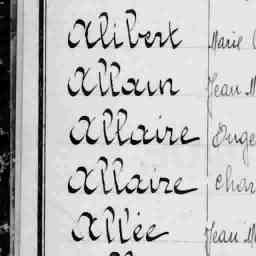 Alibert Marie
Allain Jean M
Allaire Euge
Allaire Char
Allée Jean M